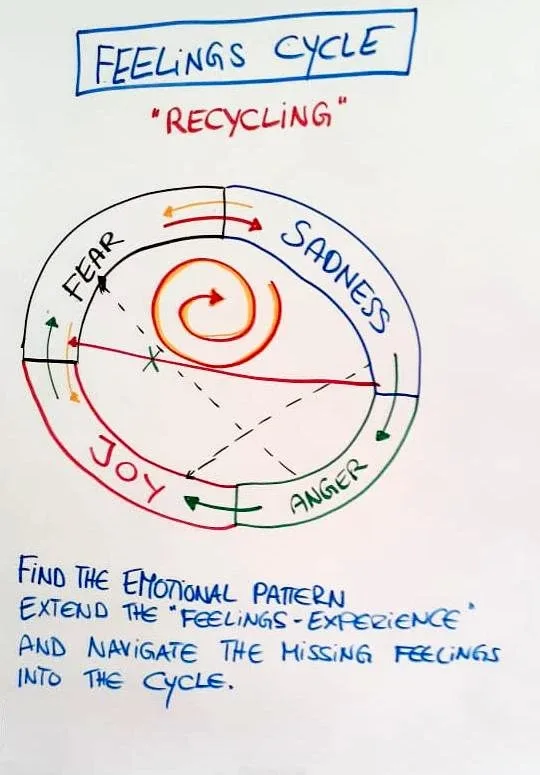 FEELiNGS CYCLE
"RECYCLiNG"
FEAR
SADNESS
JOY
ANGER
FIND THE EMOTIONAL PATTERN
EXTEND THE "FEELINGS-EXPERIENCE"
AND NAVIGATE THE MISSING FEELINGS
INTO THE CYCLE.